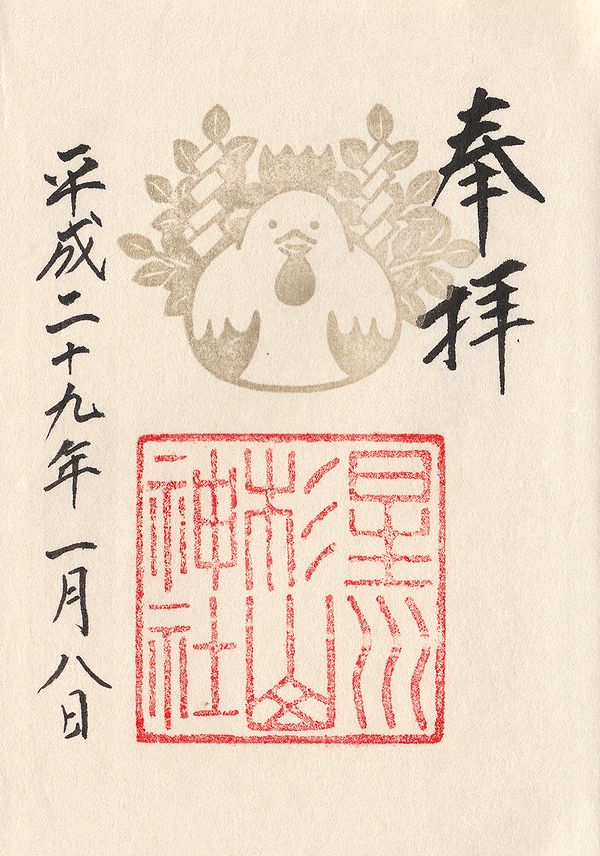 奉拝
星川
杉山
神社
平成二十九年一月八日